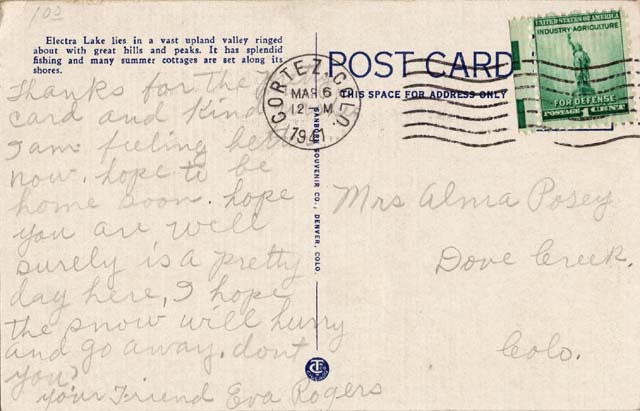 100
Electra Lake lies in a vast upland valley ringed
about with great hills and peaks. It has splendid
fishing and many summer cottages are set along its
shores.
Thanks for the
card and Kind
I am feeling
now. hope to be
home soon. hope
you are well
surely is a pretty
day here, I hope
the snow will hurry
and go away. dont
you?
Your Friend Eva Rogers
POST CARD
THIS SPACE FOR ADDRESS ONLY
CORTEZ, COLO.
MAR 6
12 M
1941
UNITED STATES OF AMERICA
INDUSTRY AGRICULTURE
FOR DEFENSE
POSTAGE 1 CENT
SANBORN SOUVENIR CO., DENVER, COLO.
Mrs Alma Posey
Dove Creek.
Colo.